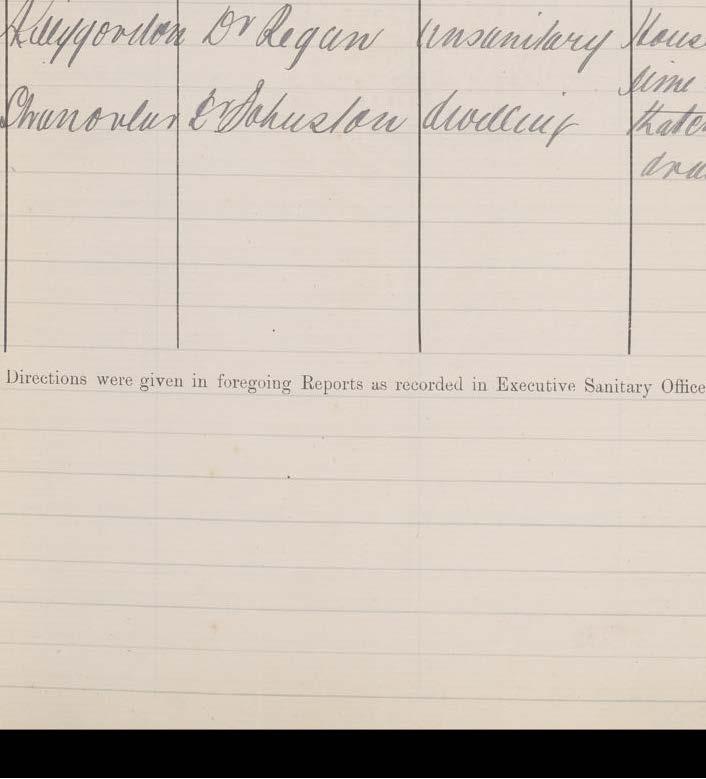 Killygordon Dr Regan unsanitary Hous
lime
Stranorlar Dr Johnston dwelling thatc
dra
Directions were given in foregoing Reports as recorded in Executive Sanitary Office